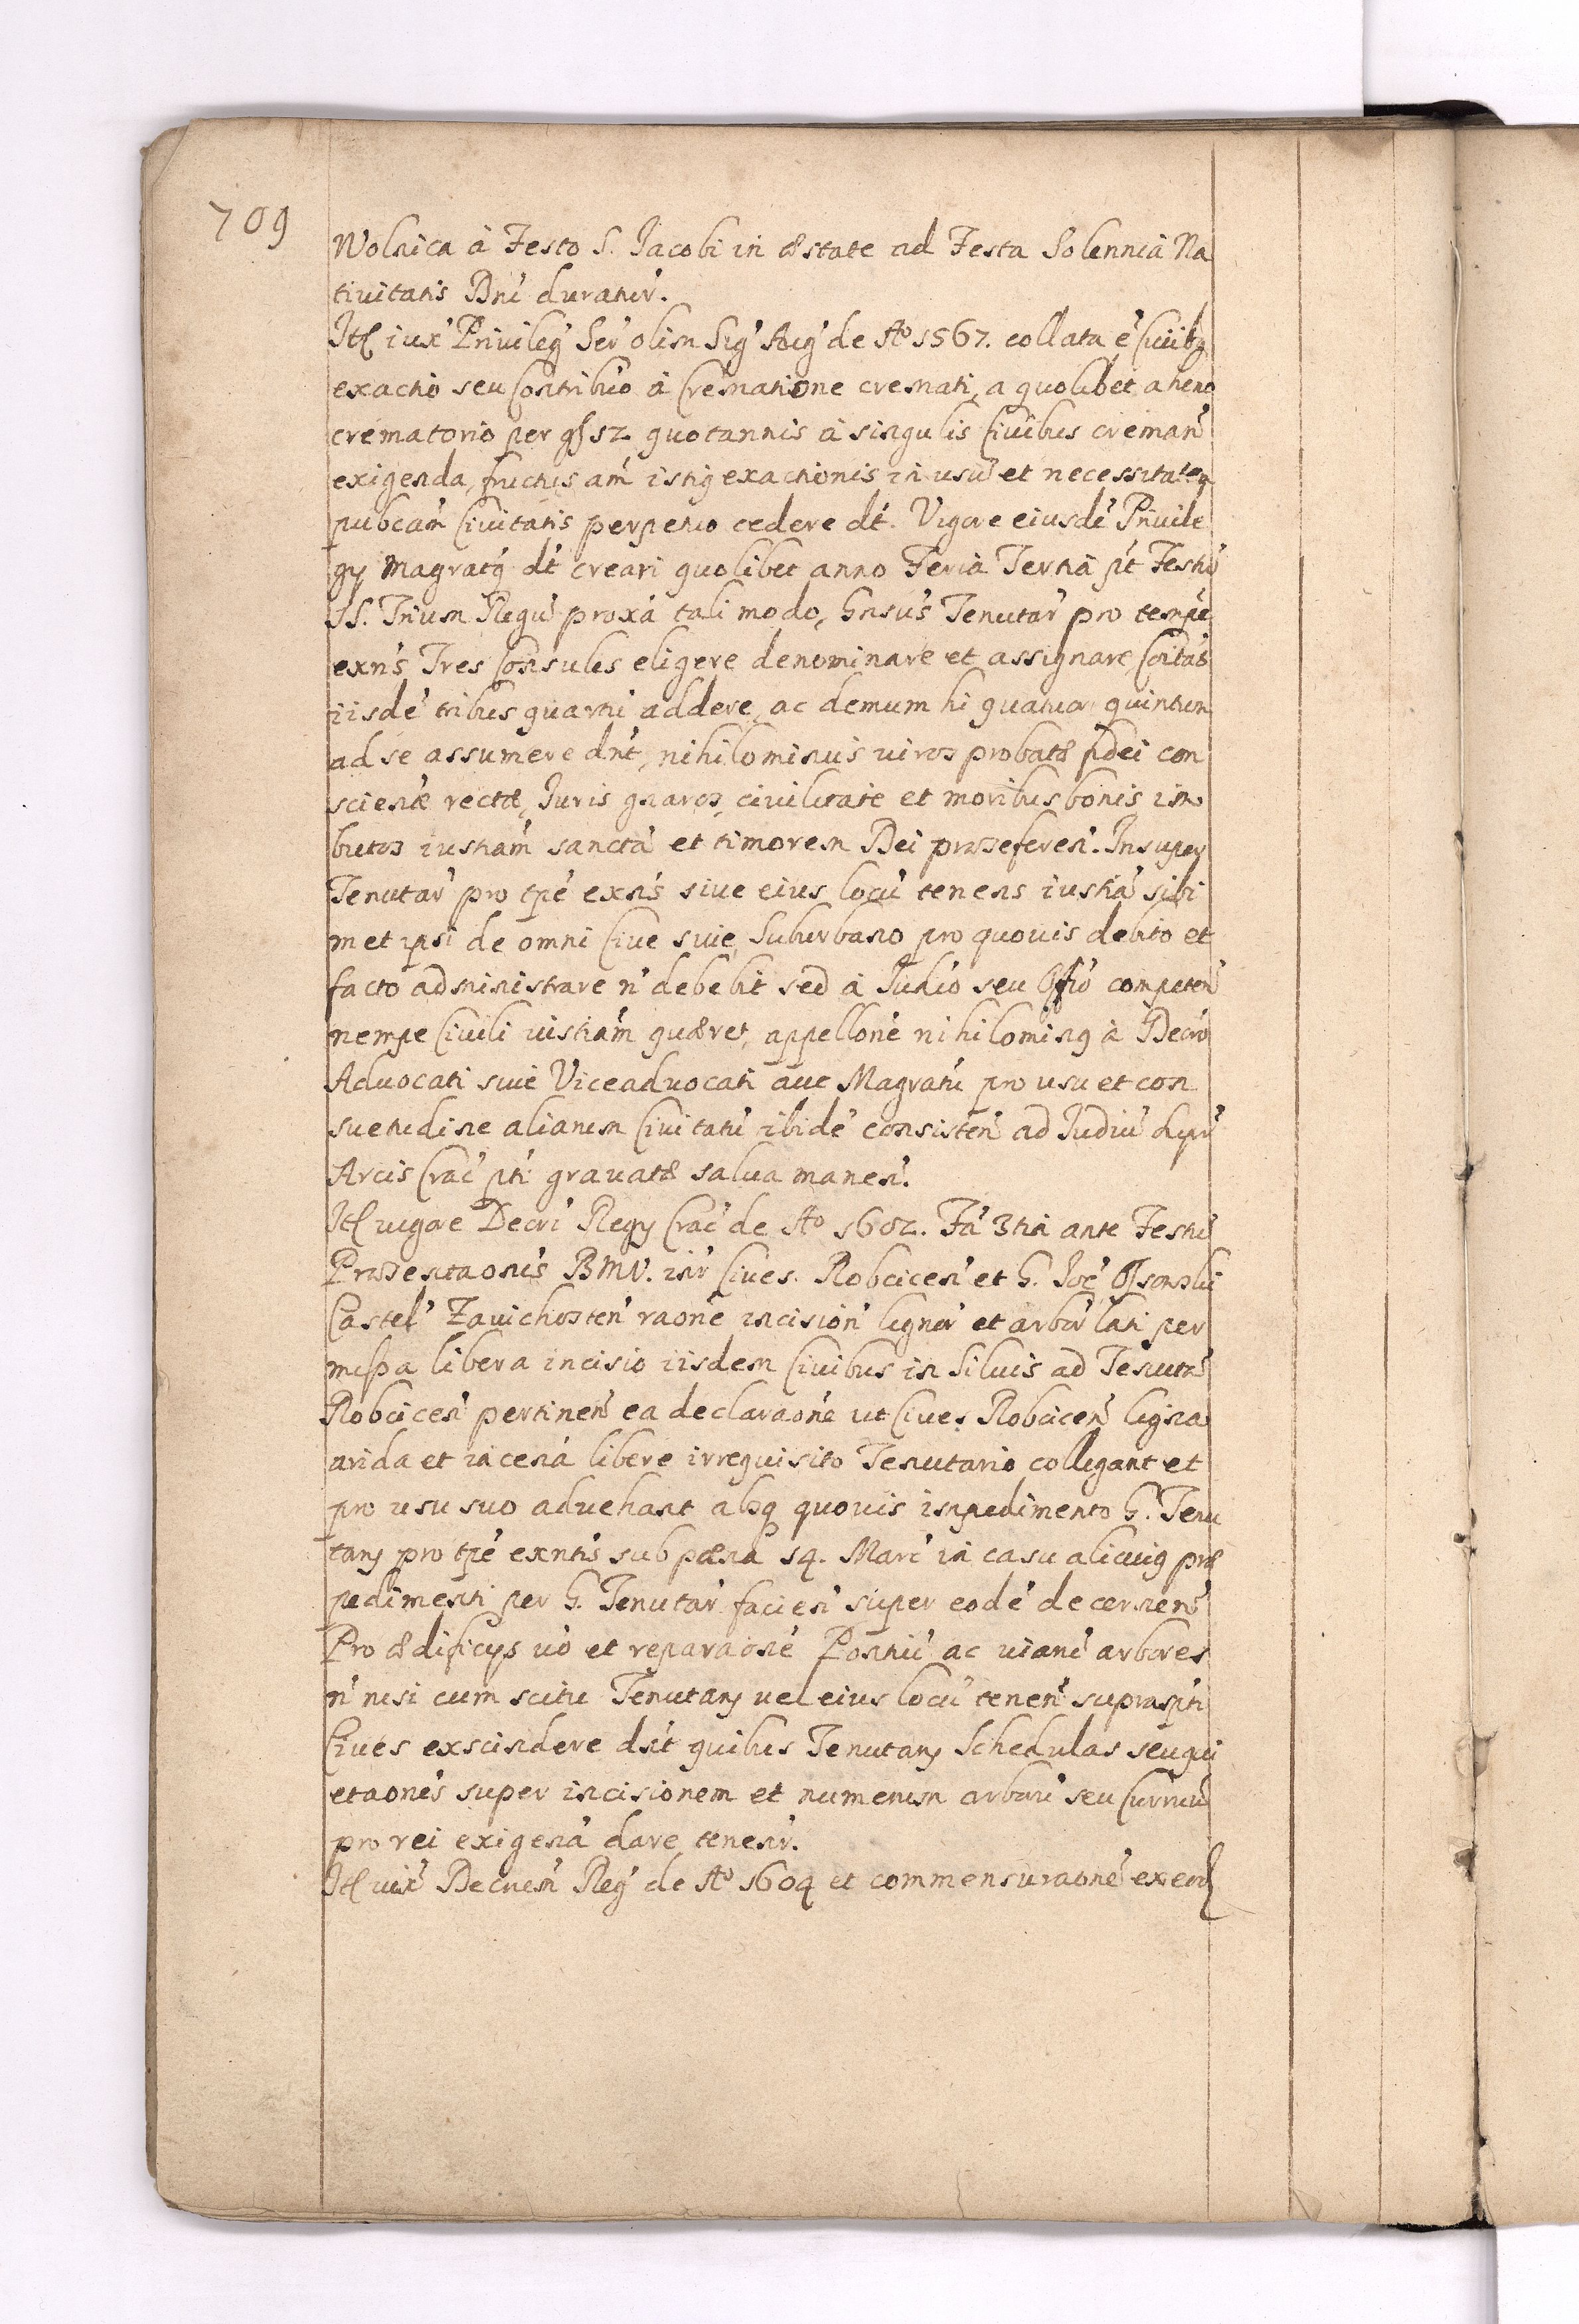 709
Wolnica à Festo S. Jacobi in æstate ad Festa Solennia Na
tiuitatis Dni duratur.
Itẽ iux' Privileg' Ser' olim Sig' Aug' de Aº 1567. collata ẽ Ciuibꝫ
exactio seu Contribuõ à Crematione cremati, a quolibet aheno
crematorio per gſ 12 quotannis à singulis Ciuibus creman'
exigenda, fructus am̃ istiꝯ exactionis in usũ et necessitatem
pubcam̃ Ciuitatis perpetuo cedere dt̃. Vigore eiusdẽ Priuile
gÿ Magratꝯ dt̃ creari quolibet anno Feria Tertia pt̃ Festũ
SS. Trium Regũ proxa tali modo, Gnsus Tenutar' pro tempe
exns Tres Consules eligere denominare et assignare, Coitas
iisdẽ tribus quartũ addere, ac demum hi quatuor quintum
ad se assumere dnt̃, nihilominus viros probatæ fidei con
scientæ rectæ, Juris gnaros, civilitate et moribus bonis im
butos iustiam̃ sanctã et timorem Dei præseferen'. Insuper
Tenutar' pro tpẽ exns siue eius locũ tenens iustiã sibi
met ipsi de omni Ciue siue Suburbano pro quouis debito et
facto administrare ñ debebit sed à Judio seu Offio competen'
nempe Ciuili iustiam̃ quæret, appellonẽ nihilominꝯ à Decro
Advocati siue Viceadvocati aut Magratũ pro usu et con
suetudine aliarum Ciuitatũ ibidẽ consisten' ad Judiũ supr'
Arcis Crac' pti gravatæ salua manen'.
Itẽ vigore Decri Regÿ Crac' de Aº 1602. Fa 3tia ante Festũ
Præsentaonis BMV. intr' Ciues Robcicen' et G. Joẽ Ossonski
Castel' Zavichosten' raonẽ incision' lignor' et arbor' lati per
missa libera incisio iisdem Ciuibus in Siluis ad Tenutã
Robcicen' pertinen' ea declaraone ut Ciues Robcicen' ligna
arida et iacena libere irrequisito Tenutario colligant et
pro usu suo advehant absqꝫ quouis impedimento G. Tenu
tarÿ pro tpẽ exntis sub pœna 14. Marc' in casu alicuiꝯ præ
pedimenti per G. Tenutar' facien' super eodẽ decernen'
Pro ædificÿs vo et reparaone Pontiũ ac viarũ arbores
ñ nisi cum scitu Tenutarÿ vel eius locũ tenen' suprapti
Ciues exscindere dnt̃ quibus Tenutarÿ Schedulas seu qui
etaones super incisionem et numerum arborũ seu Curruũ
pro rei exigena dare tenent'.
Itẽ iux' Decrem̃ Reg' de Aº 1604 et commensuraonẽ ex eod